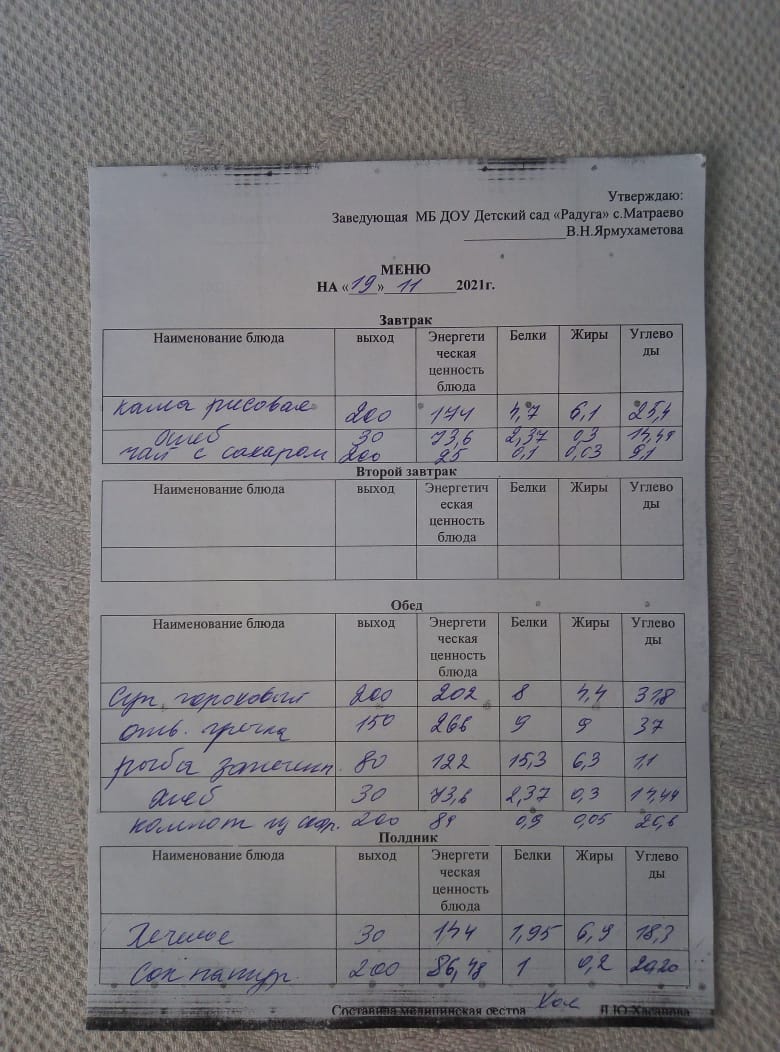 Утверждаю:
Заведующая МБ ДОУ Детский сад «Радуга» с.Матраево
______________В.Н.Ярмухаметова
МЕНЮ
НА «19» 11 2021г.
Завтрак
Наименование блюда выход Энергети ческая ценность блюда Белки Жиры Углево ды
каша рисовая 200 174 4,7 6,1 25,4
хлеб 30 73,6 2,37 0,3 14,49
чай с сахаром 200 25 0,1 0,03 9,1
Второй завтрак
Наименование блюда выход Энергетич еская ценность блюда Белки Жиры Углево ды
Обед
Наименование блюда выход Энергети ческая ценность блюда Белки Жиры Углево ды
Суп гороховый 200 202 8 4,4 31,8
отв. гречка 150 266 9 9 37
рыба запечен. 80 122 15,3 6,3 1,1
хлеб 30 73,6 2,37 0,3 14,49
компот из сухр. 200 84 0,9 0,05 20,6
Полдник
Наименование блюда выход Энергети ческая ценность блюда Белки Жиры Углево ды
Печенье 30 144 1,95 6,9 18,3
Сок натур. 200 86,48 1 0,2 20,20
Составила медицинская сестра Л.Ю.Хасанова